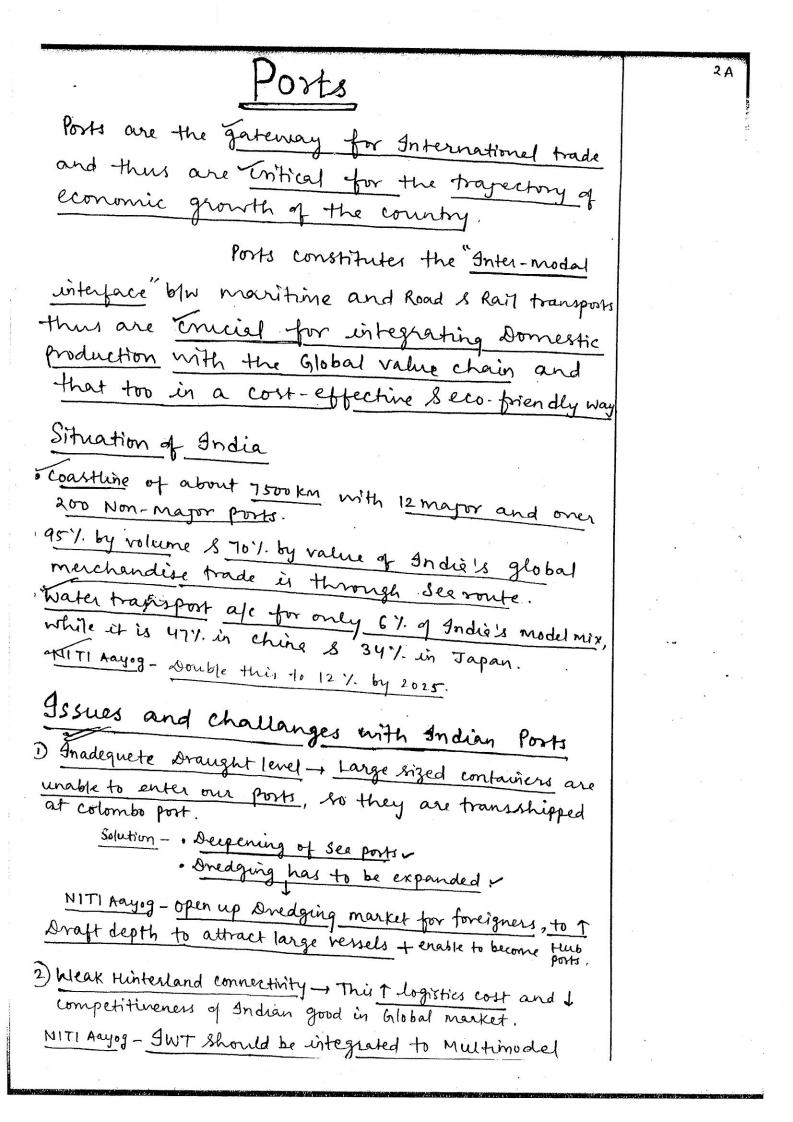 2A
Ports
Ports are the gateway for International trade
and thus are critical for the trajectory of
economic growth of the country.
Ports constitutes the "Inter-modal
interface" b/w maritime and Road & Rail transports
thus are crucial for integrating Domestic
production with the Global value chain and
that too in a cost-effective & eco-friendly way
Situation of India
• Coastline of about 7500 km with 12 major and over
200 Non-Major ports.
• 95% by volume & 70% by value of India's global
merchandise trade is through see route.
• Water transport a/c for only 6% of India's model mix,
while it is 47% in china & 34% in Japan.
• NITI Aayog - Double this to 12% by 2025.
Issues and challanges with Indian Ports
1) Inadequete Draught level → Large sized containers are
unable to enter our ports, so they are transshipped
at Colombo port.
Solution - • Deepening of see ports ✓
• Dredging has to be expanded ✓
↓
NITI Aayog - open up Dredging market for foreigners, to ↑
Draft depth to attract large vessels + enable to become Hub
ports.
2) Weak Hinterland connectivity → This ↑ logistics cost and ↓
competitiveness of Indian good in Global market.
NITI Aayog - IWT should be integrated to Multimodel